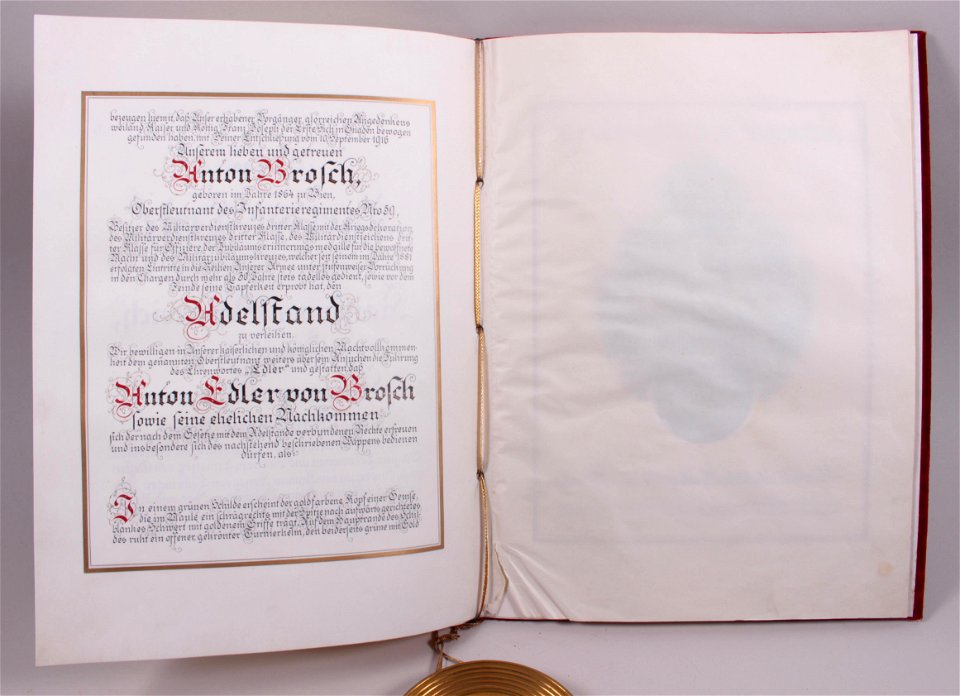 bezeugen hiemit, daß Unser erhabener Vorgänger glorreichen Angedenkens
weiland Kaiser und König Franz Joseph der Erste Sich in Gnaden bewogen
gefunden haben, mit Seiner Entschließung vom 10. September 1916
Unserem lieben und getreuen
Anton Brosch,
geboren im Jahre 1864 zu Wien,
Oberstleutnant des Infanterieregimentes Nro 59,
Besitzer des Militärverdienstkreuzes dritter Klasse mit der Kriegsdekoration,
des Militärverdienstkreuzes dritter Klasse, des Militärdienstzeichens drit-
ter Klasse für Offiziere, der Jubiläumserinnerungsmedaille für die bewaffnete
Macht und des Militärjubiläumskreuzes, welcher seit seinem im Jahre 1881
erfolgten Eintritte in die Reihen Unserer Armee unter stufenweiser Vorrückung
in den Chargen durch mehr als 30 Jahre stets tadellos gedient, sowie vor dem
Feinde seine Tapferkeit erprobt hat, den
Adelstand
zu verleihen.
Wir bewilligen in Unserer kaiserlichen und königlichen Machtvollkommen-
heit dem genannten Oberstleutnant weiters über sein Ansuchen die Führung
des Ehrenwortes „Edler" und gestatten, daß
Anton Edler von Brosch
sowie seine ehelichen Nachkommen
sich der nach dem Gesetze mit dem Adelstande verbundenen Rechte erfreuen
und insbesondere sich des nachstehend beschriebenen Wappens bedienen
dürfen, als:
In einem grünen Schilde erscheint der goldfarbene Kopf einer Gemse,
die im Maule ein schrägrechts mit der Spitze nach aufwärts gerichtetes
blankes Schwert mit goldenem Griffe trägt. Auf dem Hauptrande des Schil-
des ruht ein offener, gekrönter Turnierhelm, den beiderseits grüne mit Gold